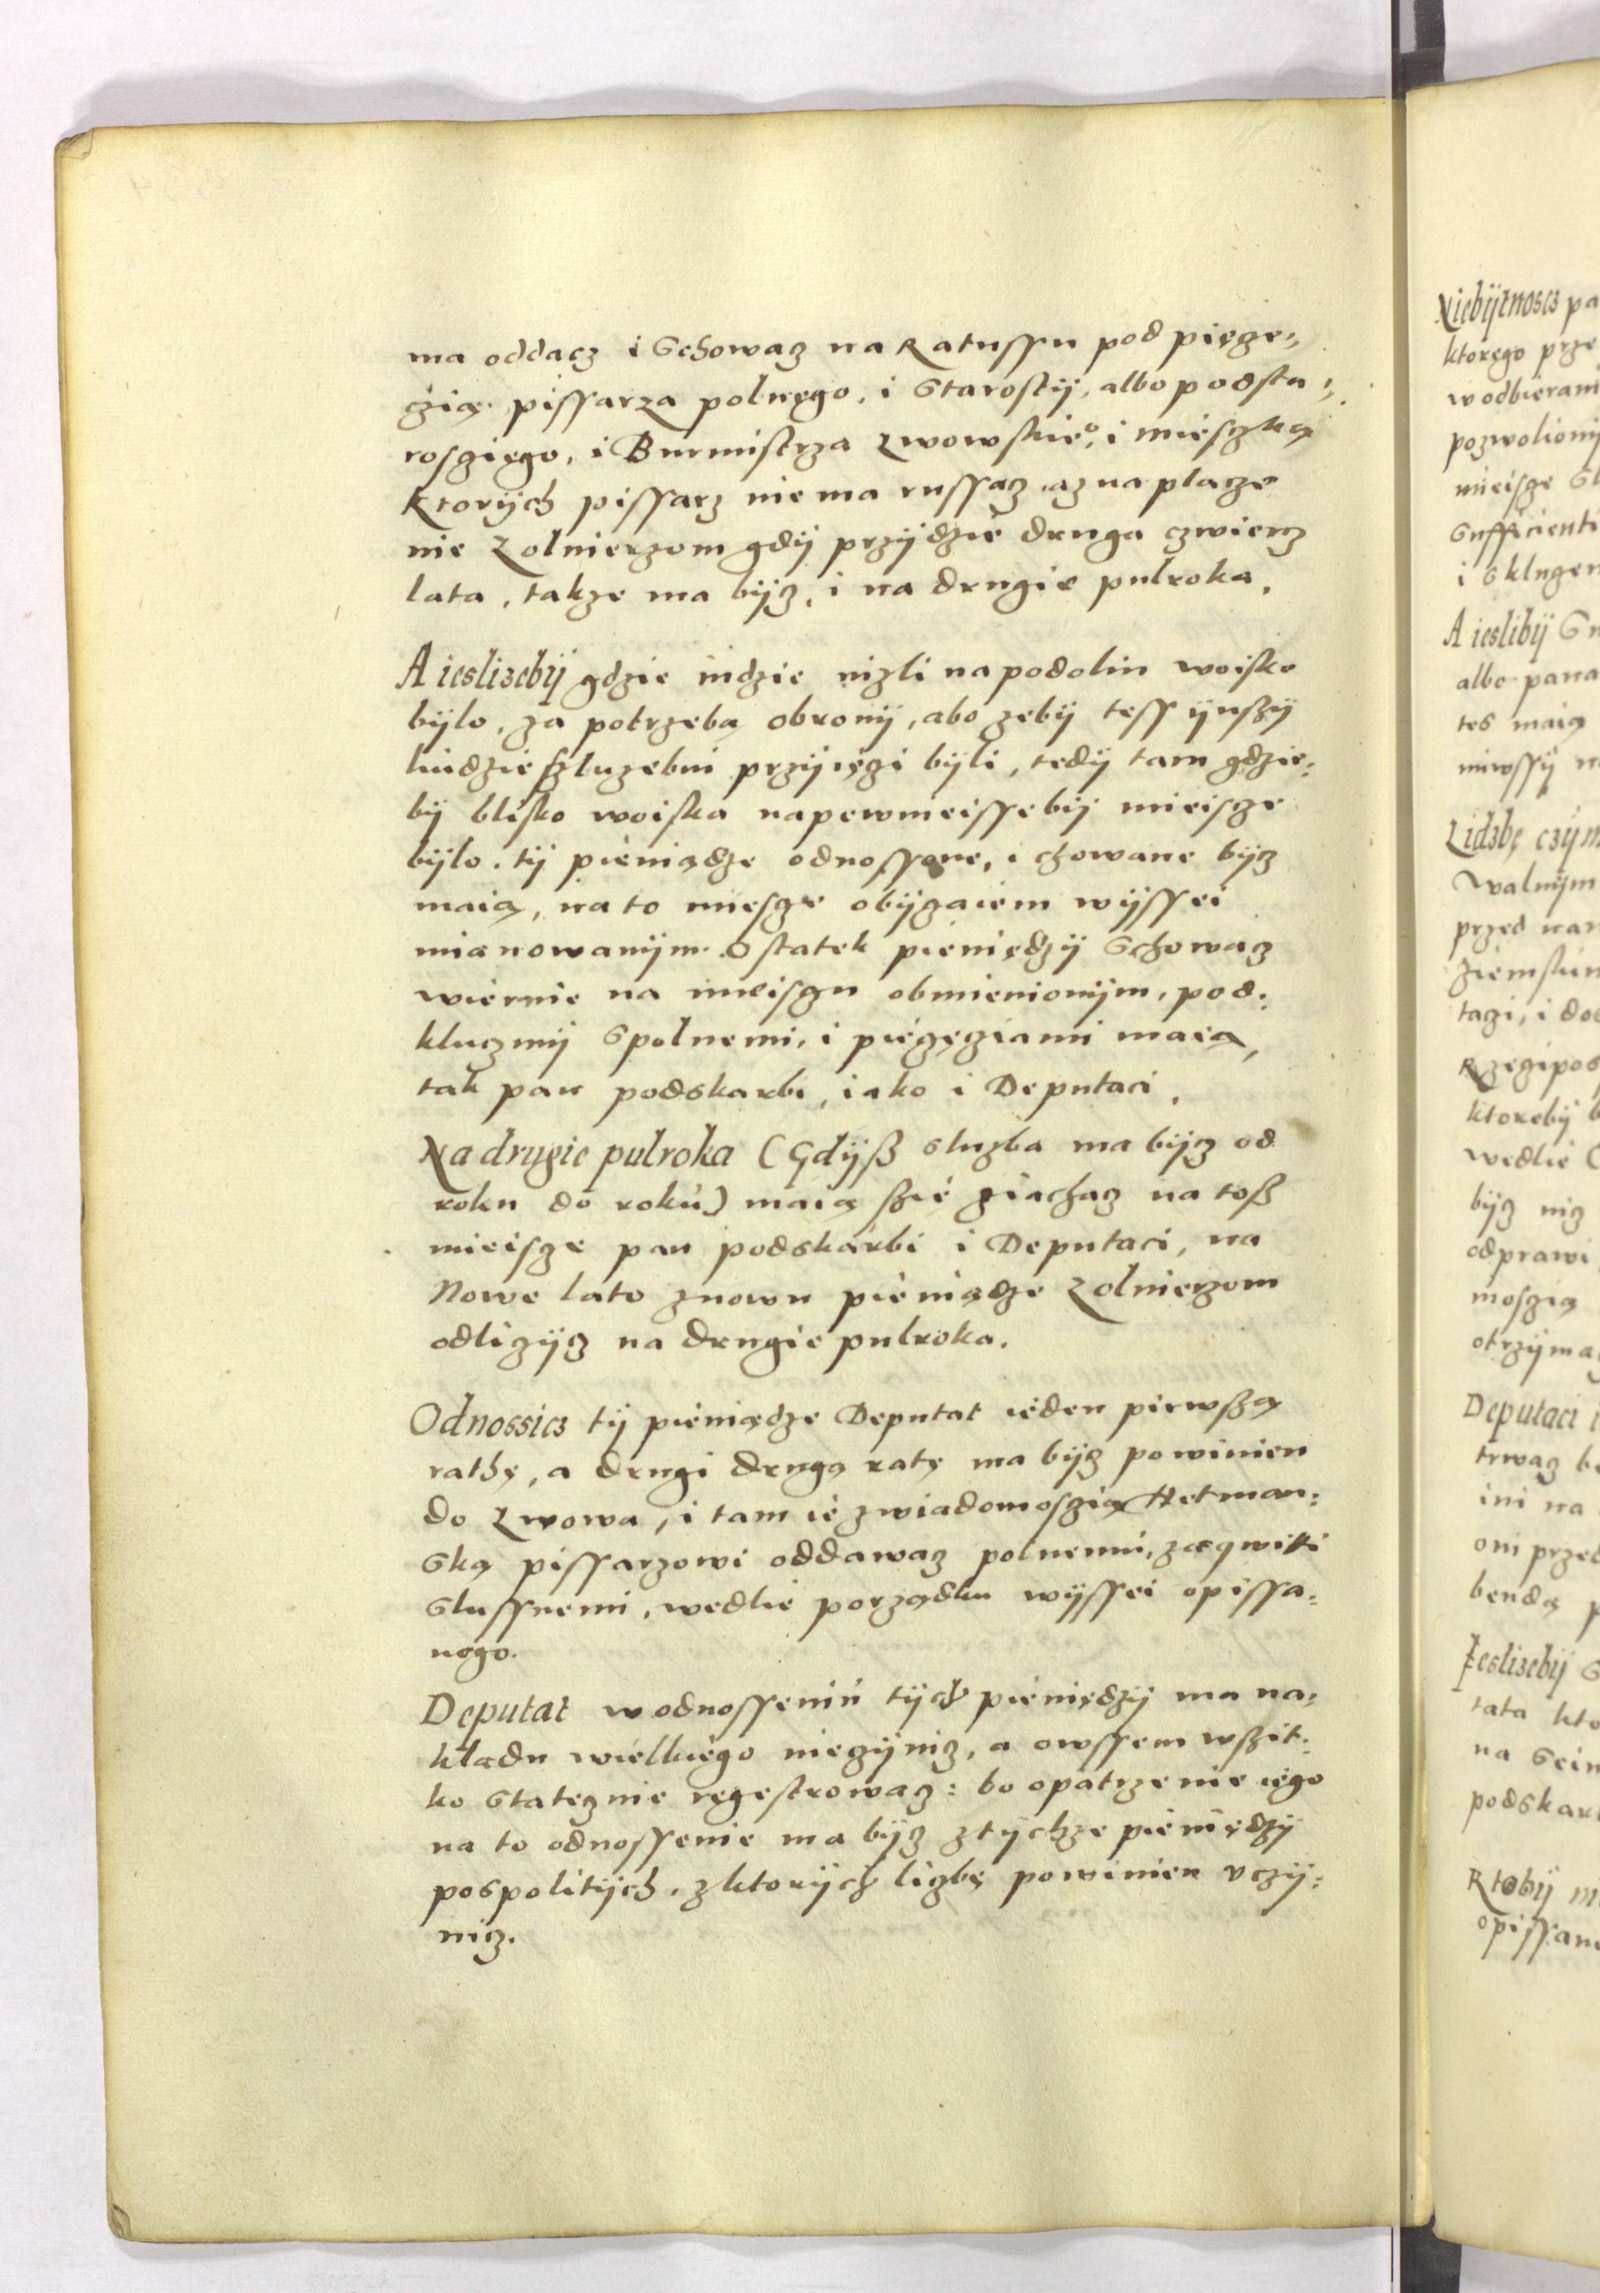 ma oddacz i Schowacz na Ratussu pod pięcze„
czią. pissarza polnęgo, i Starostij, albo podsta„
rosczięgo, i Burmistrza Lwowskieº, i miesczką
Ktorijch pissarz nie ma russacz az na placze
nie Zolnierzom gdij przijdzie druga czwiercz
lata, takze ma bijcz, i na drugie pulroka.
A iesliżebij gdzie indzie nizli na podoliu woisko
bijlo, za potrzebą obronij, abo zebij tess ijnszij
ludzie szluzebni przijięczi bijli, tedij tam gdzie:
bij blisko woiska napewnieissebij mieiscze
bijlo. tij pieniądze odnossone, i chowane bijcz
maią, na to miescze obijczaiem wijssei
mianowanijm. Ostatek pieniędzij Schowacz
wiernie na mieisczu obmienionijm, pod:
kluczmij Spolnemi, i pieczęcziami maią,
tak pan podskarbi, iako i Deputaci.
Na drugie pulroka (Gdijß sluzba ma bijcz od
roku do roku) maią szie ziachacz na toß
mieiscze pan podskarbi i Deputaci, na
Nowe lato znowu pieniądze Zolnierzom
odliczijcz na drugie pulroka.
Odnossicz tij pieniądze Deputat ieden pierwszą
rathę, a drugi drugą ratę ma bijcz powinien
do Lwowa, i tam ie zwiadomosczią Hetman:
Ską pissarzowi oddawacz polnemu, za qwitti
Slussnemi, wedlie porządku wijssei opissa:
nego.
Deputat w odnosseniu tijch pieniędzij ma na:
kladu wielkiego nieczijnicz, a owssem wszit:
ko Statecznie regestrowacz: bo opatrzenie iego
na to odnossenie ma bijcz z tijchze pieniędzij
pospolitijch, z ktorijch liczbę powinien uczij:
nicz.
Niebijtnoscz pa
ktorego prze
w odbierani
pozwolionij
mieiscze Sl
Sufficienti
A iieslibij
albo pana
tes maią
Lidzbę czijn
Walnijm
przed nan
ktorebij b
wedlie
bijcz nicz
odprawi
mosczią
otrzijma
Deputaci i
trwacz be
ini na
oni przed
bendą p
Iesliżebij
tata kto
na Seim
podskar
Ktobij ni
opissane